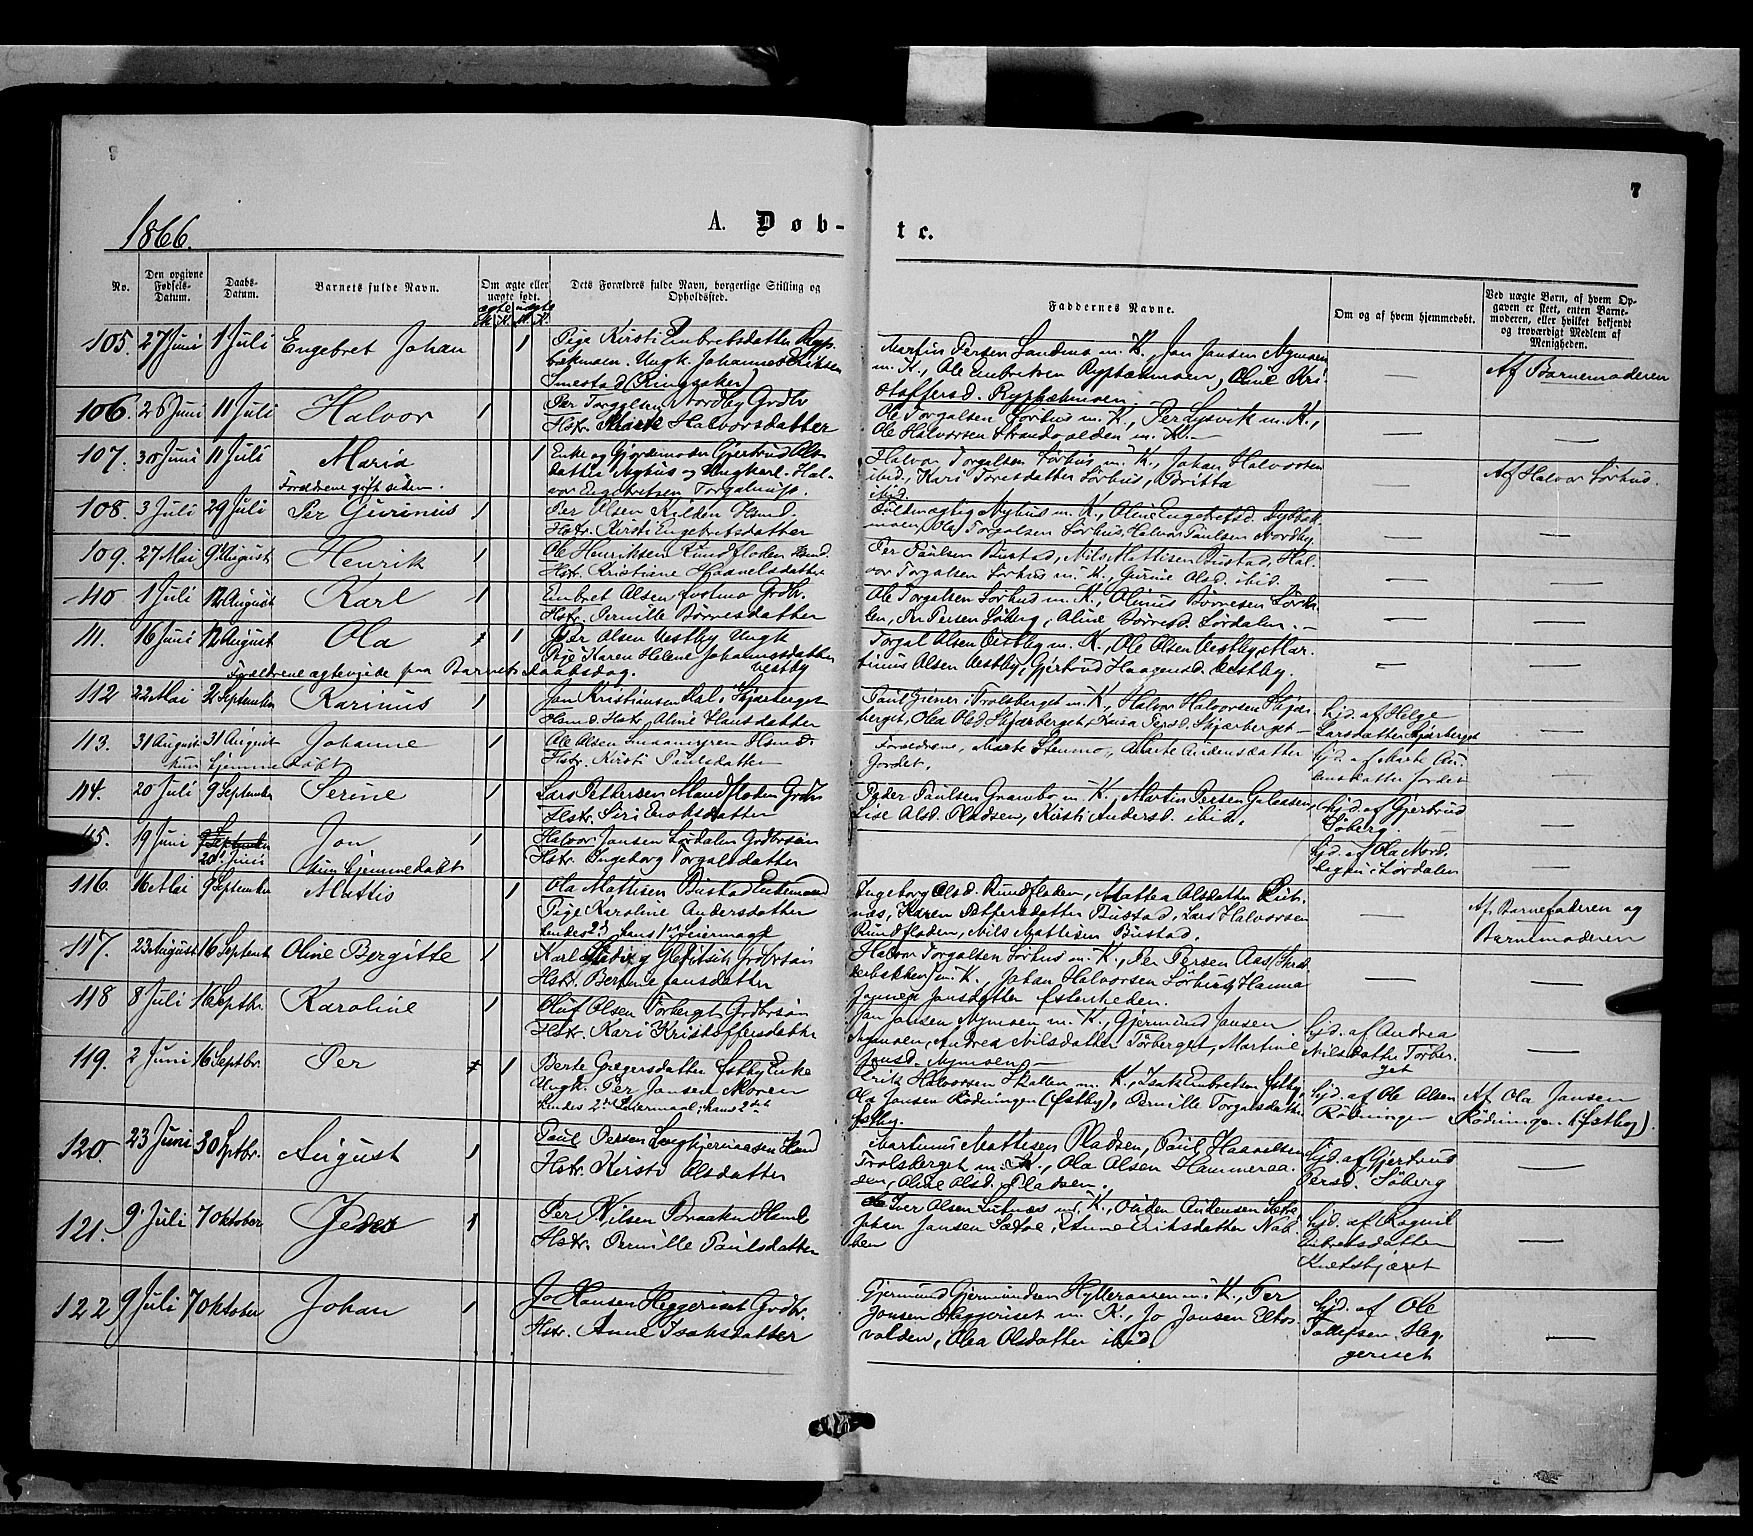 7
1866.
A. Døb-
te.
No.
Den opgivne Fødsels-Datum.
Daabs-Datum.
Barnets fulde Navn.
Om ægte eller uægte født.
ægte uægte
M. K. M. K.
Dets Forældres fulde Navn, borgerlige Stilling og Opholdssted.
Faddernes Navne.
Om og af hvem hjemmedøbt.
Ved uægte Børn, af hvem Opgaven er skeet, enten Barnemoderen, eller hvilket bekjendt og troværdigt Medlem af Menigheden.
105. 27 Juni 1 Juli Engebret Johan 1 Pige Kirsti Enbretsdatter
Ungk. Johannes Eriksen
Smestad (Ringsaker)
Martin Persen Sandens m. K., Jon Jansen Nymoen
m. K., Ole Enbretsen
Af Barnemoderen
106. 11 Juli Halvor 1 Per Torgalsen Nordby Grdbr
Hstr. Marte Halvorsdatter
Ole Torgalsen Sørhus m. K., Per Lysvik m. K.,
Ole Halvorsen Strandvolden m. K. —
—
—
107. 30 Juni 11 Juli Maria
Forældrene gift siden.
1 Enke og Gjordemoder Gjertrud Ols-
datter Nyhus og Ungkarl Hal-
vor Engebretsen
Halvor Torgalsen Sørhus m. K., Johan Halvorsen
ibid., Kari Toresdatter Sørhus, Britta
ibid.
—
Af Halvor Sørhus.
108. 3 Juli 29 Juli Per Gurinius 1 Per Olsen Kilden
Hstr. Kirsti Engebretsdatter
Fuldmægtig Nyhus m. K., Oline Engebretsd.
Ole Torgalsen Sørhus, Halvor Paulsen Nordby
—
—
109. 27 Mai 9 August Henrik 1 Ole Henriksen Rundfloden Hsmd.
Hstr. Kristiane Haavelsdatter
Per Paulsen Bustad, Nils Mattisen Bustad, Hal-
vor Torgalsen Sørhus m. K., Gurine Olsd. ibid.
—
—
110 1 Juli 12 August Karl 1 Enbret Olsen Grdbr.
Hstr. Pernille Børresdatter
Ole Torgalsen Sørhus m. K., Olinus Børresen Sørda-
len, Per Persen Søberg, Oline Børresd. Sørdalen. —
—
—
111. 16 Juni 12 August Ola 1 Per Olsen Vestby Ungk
Pige Karen Helene Johannesdatter
Vestby
Forældrene ægteviede paa Barnets Daabsdag.
Torgal Olsen Østby m. K., Ole Olsen Vestby, Mar-
tinus Olsen Vestby, Gjertrud Haagensd. Vestby.
—
—
112 22 Mai 2 September Karinus 1 Jon Kristiansen
Hsmd. Hstr. Oline Hansdatter
Trolsberget m. K., Halvor Halvorsen Skjær-
berget, Olea Olsd Skjærberget, Persd. Skjærberget —
hjd. af Helge
Larsdatter Skjærberget
—
113. 31 August 31 August Johanne
kun hjemmedøbt
1 Ole Olsen Smaamyren Hsmd.
Hstr. Kirsti Paulsdatter
Forældrene, Marte Stenmo, Marte Audensdatter
Jordet.
hjd. af Marte Au-
densdatter Jordet
—
114. 20 Juli 9 September Serine 1 Lars Pettersen Mandfloden Grdbr
Hstr. Siri Enoksdatter
Peder Paulsen Grambo m. K., Martin Persen Galaasen,
Lise Olsd. Pladsen, Kirsti Andersd. ibid.
hjd. af Gjertrud
Søberg
—
115. 19 Juni 9 September
20 Juni
Jon
kun hjemmedøbt
1 Halvor Jansen Sørdalen Grdbrsøn
Hstr. Ingeborg Torgalsdatter
hjd. af Ola
i Sørdalen
—
116. 16 Mai 9 September Mattis 1 Ola Mattisen Bustad Enkemand
Pige Karoline Andersdatter
hendes 2d, hans 1st Leiermaal
Ingeborg Olsd. Rundfloden, Mattea Olsdatter Lut-
næs, Karen Pettersdatter Bustad, Lars Halvorsen
Rundfloden, Nils Mattisen Bustad.
—
Af Barnefaderen og
Barnemoderen
117. 23 August 16 Septemb Oline Bergitte 1 Karl Grdbrsøn
Hstr. Bertine Jansdatter
Halvor Torgalsen Sørhus m. K., Per Persen Aas
m. K., Johan Halvorsen Sørhus, Hanna
Jansdatter Østenheden.
—
—
118 8 Juli 16 Septbr. Karoline 1 Oluf Olsen Torberget Grdbrsøn
Hstr. Kari Kristoffersdatter
Jan Jansen Nymoen m. K., Gjermund Jansen
Nymoen, Andrea Nilsdatter Torberget, Martine
Jansd. Nymoen. —
hjd. af Andrea
Nilsdatter Torber-
get
—
119. 2 Juni 16 Septbr. Per 1 Berte Gregersdatter Østby Enke
Ungk. Per Jansen Moren
hendes 2det Leiermaal, hans 2det
Erik Halvorsen m. K., Isak Enbretsen Østby,
Ola Jansen Rødningen (Østby), Pernille Torgalsdatter
Østby.
hjd. af Ole Olsen
Rødningen
Af Ola Jansen
Rødningen (Østby).
120. 23 Juni 30 Sptbr. August 1 Paul Persen
Hstr. Kirsti Olsdatter
Martinus Mattisen Pladsen, Paul Haavelsen
Trolsberget m. K., Ola Olsen Hammeraa-
sen, Oline Olsd. Pladsen.
hjd. af Gjertrud
Persd. Søberg
—
121. 9 Juli 7 Oktober Peder 1 Per Nilsen Braaten Hsmd
Hstr. Pernille Paulsdatter
Iver Olsen Lutnæs m. K., Auden Audensen
Johan Jansen Anne Eriksdatter Nab-
ben
hjd. af Ragnil
Enbretsdatter
—
122 9 Juli 7 Oktober Johan 1 Jo Hansen Heggeriset Grdbr.
Hstr. Anne Isaksdatter
Gjermund Gjermundsen Hylleraasen m. K., Per
Jonsen Heggeriset m. K., Jo Jonsen Eltos-
volden, Olea Olsdatter ibid.
hjd. af Ole
Tollefsen Heg-
geriset
—